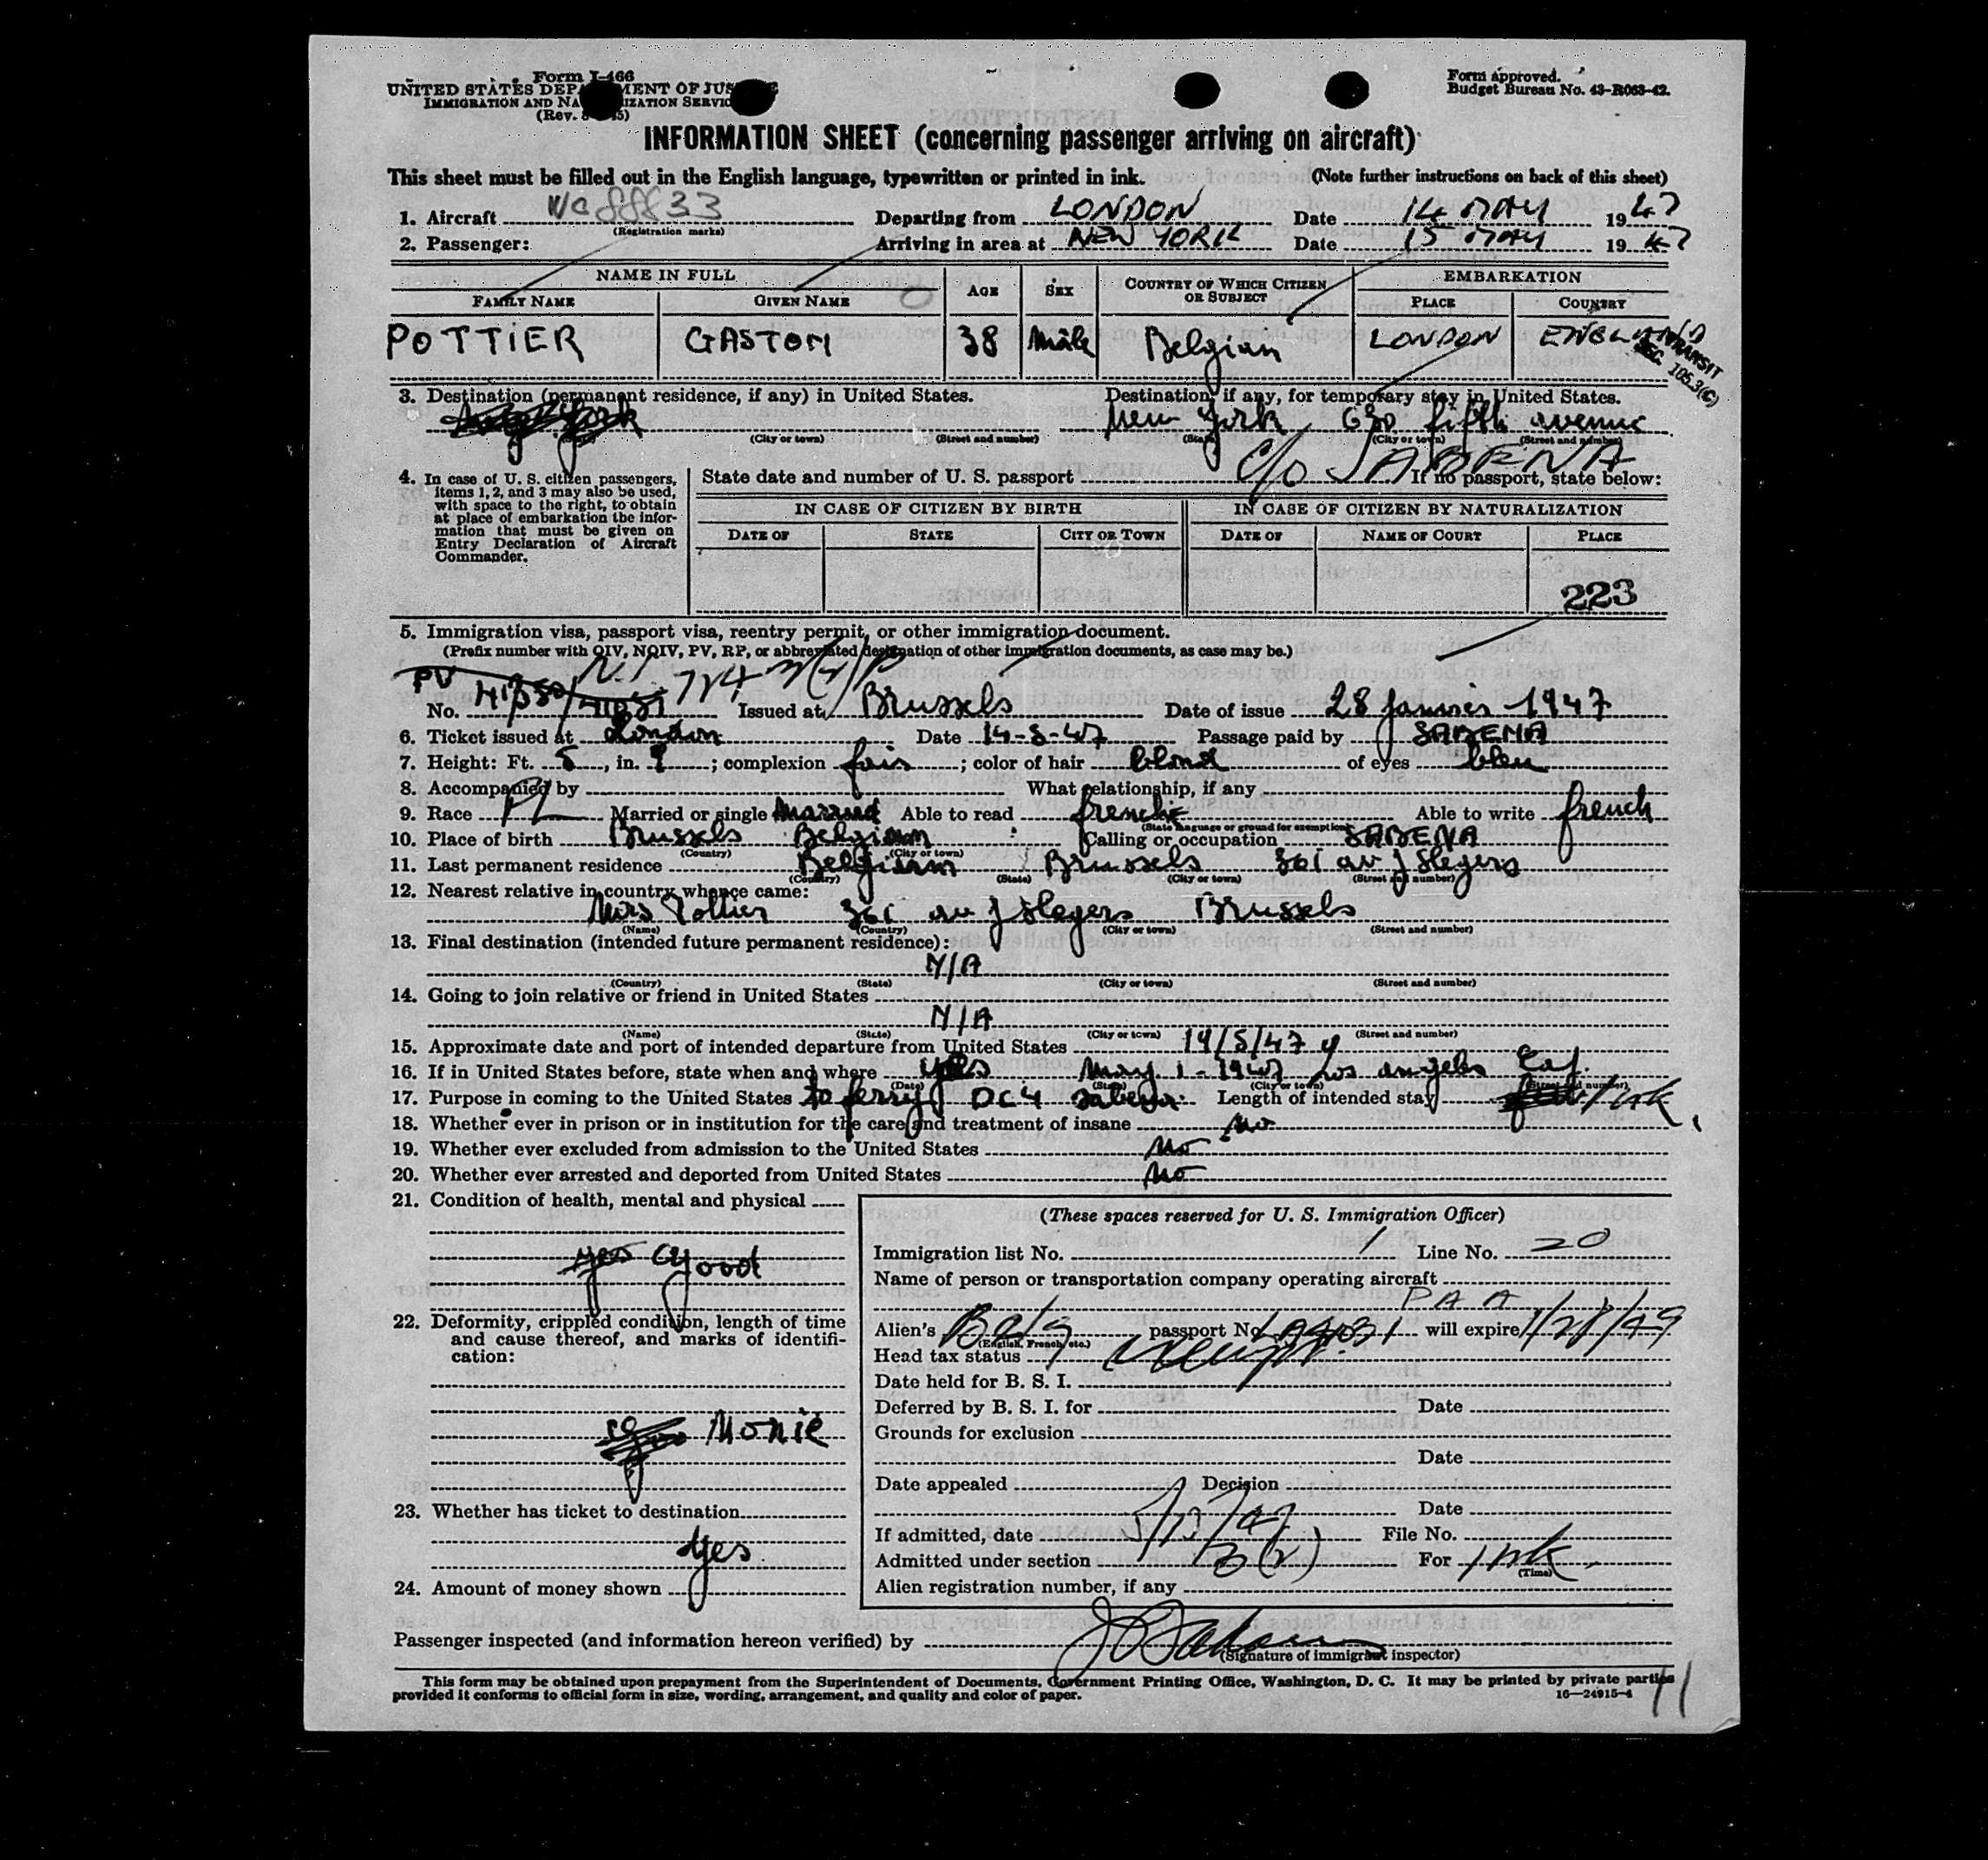 Form I-466
UNITED STATES DEPARTMENT OF JUSTICE
IMMIGRATION AND NATURALIZATION SERVICE
(Rev.
Form approved.
Budget Bureau No. 43-R063-42.
INFORMATION SHEET (concerning passenger arriving on aircraft)
This sheet must be filled out in the English language, typewritten or printed in ink. (Note further instructions on back of this sheet)
1. Aircraft NC 88833 Departing from LONDON Date 14 MAY 1947
(Registration marks)
2. Passenger: Arriving in area at NEW YORK Date 15 MAY 1947
NAME IN FULL AGE SEX COUNTRY OF WHICH CITIZEN OR SUBJECT EMBARKATION
FAMILY NAME GIVEN NAME PLACE COUNTRY
POTTIER GASTON 38 Male Belgian LONDON ENGLAND
TRANSIT
SEC. 105.3(C)
3. Destination (permanent residence, if any) in United States. Destination, if any, for temporary stay in United States.
New York 630 fifth avenue
(City or town) (Street and number) (State) (City or town) (Street and number)
c/o SABENA
4. In case of U. S. citizen passengers, items 1, 2, and 3 may also be used, with space to the right, to obtain at place of embarkation the information that must be given on Entry Declaration of Aircraft Commander.
State date and number of U. S. passport If no passport, state below:
IN CASE OF CITIZEN BY BIRTH IN CASE OF CITIZEN BY NATURALIZATION
DATE OF STATE CITY OR TOWN DATE OF NAME OF COURT PLACE
223
5. Immigration visa, passport visa, reentry permit, or other immigration document.
(Prefix number with QIV, NQIV, PV, RP, or abbreviated designation of other immigration documents, as case may be.)
PV
No. Issued at Brussels Date of issue 28 Janvier 1947
6. Ticket issued at London Date 14-5-47 Passage paid by SABENA
7. Height: Ft. 5, in. 9; complexion fair; color of hair blond of eyes bleu
8. Accompanied by What relationship, if any
9. Race Married or single Married Able to read french Able to write french
(State language or ground for exemption)
10. Place of birth Brussels Belgium Calling or occupation SABENA
(Country) (City or town)
11. Last permanent residence Belgium Brussels 361 av J Slegers
(Country) (State) (City or town) (Street and number)
12. Nearest relative in country whence came:
Mrs Pottier 361 av J Slegers Brussels
(Name) (Country) (City or town) (Street and number)
13. Final destination (intended future permanent residence):
N/A
(Country) (State) (City or town) (Street and number)
14. Going to join relative or friend in United States
N/A
(Name) (State) (City or town) (Street and number)
15. Approximate date and port of intended departure from United States 19/5/47
16. If in United States before, state when and where yes May 1 - 1947 Los angeles Caf.
(Date) (State) (City or town) (Street and number)
17. Purpose in coming to the United States to ferry DC4 Sabena Length of intended stay 1 wk
18. Whether ever in prison or in institution for the care and treatment of insane no
19. Whether ever excluded from admission to the United States no
20. Whether ever arrested and deported from United States no
21. Condition of health, mental and physical
yes Good
22. Deformity, crippled condition, length of time and cause thereof, and marks of identification:
None
23. Whether has ticket to destination
yes
24. Amount of money shown
(These spaces reserved for U. S. Immigration Officer)
Immigration list No. 1 Line No. 20
Name of person or transportation company operating aircraft
PAA
Alien's Belg passport No. will expire 1/28/49
(English, French, etc.)
Head tax status exempt
Date held for B. S. I.
Deferred by B. S. I. for Date
Grounds for exclusion
Date
Date appealed Decision
Date
If admitted, date File No.
Admitted under section 3(2) For 1 wk.
(Time)
Alien registration number, if any
Passenger inspected (and information hereon verified) by
(Signature of immigrant inspector)
This form may be obtained upon prepayment from the Superintendent of Documents, Government Printing Office, Washington, D. C. It may be printed by private parties
provided it conforms to official form in size, wording, arrangement, and quality and color of paper. 16—24915-4